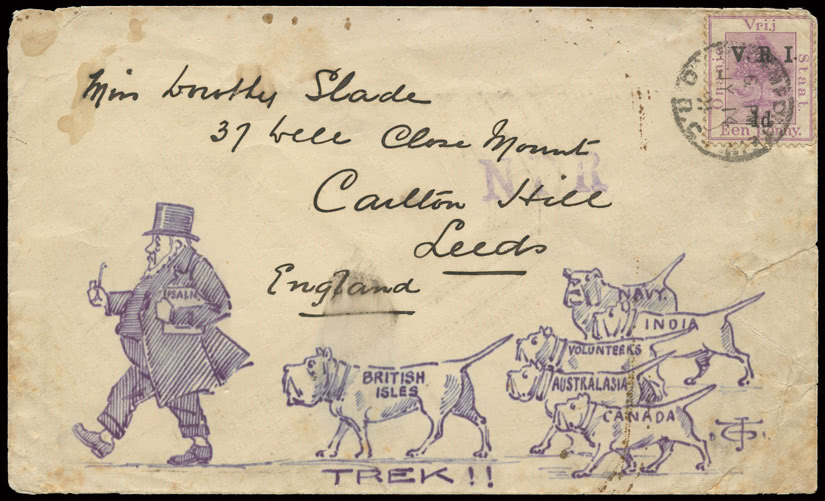 Vrij
Staat.
V. R. I.
1d
Een Penny.
Miss Dorothy Slade
37 Well Close Mount
Carlton Hill
Leeds
England
PSALM
BRITISH
ISLES
NAVY.
INDIA
VOLUNTEERS
AUSTRALASIA
CANADA
TREK!!